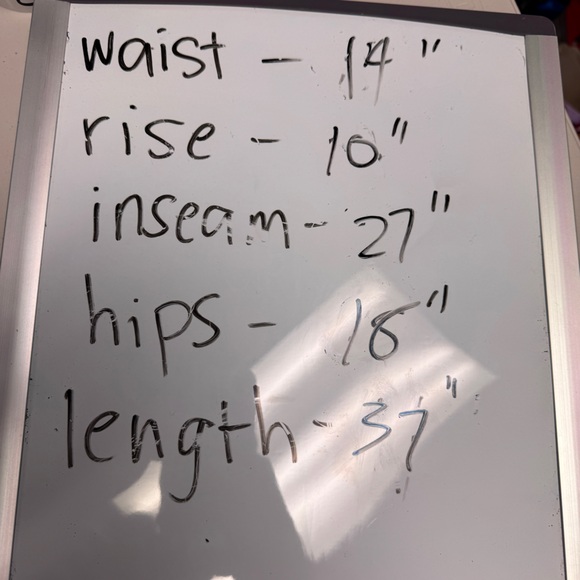 waist - 14"
rise - 10"
inseam - 27"
hips - 18"
length - 37"